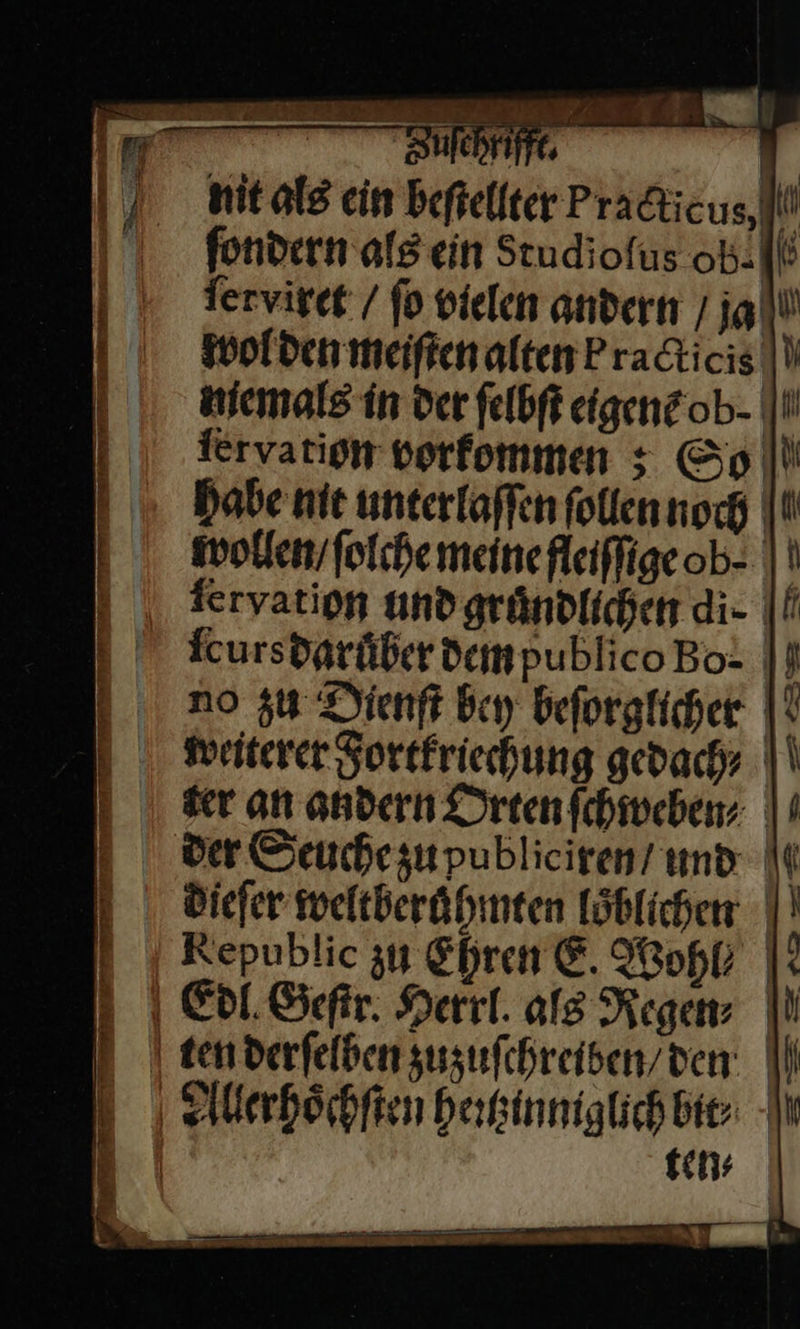 Zuſchrifft.
nit als ein beſtellter Practicus,
ſondern als ein Studioſus ob-
ſerviret / ſo vielen andern / ja
wol den meiſten alten Practicis
niemals in der ſelbſt eigenẽ ob-
ſervation vorkommen ; So
habe nit unterlaſſen ſollen noch
wollen/ ſolche meine fleiſſige ob-
ſervation und gruͤndlichen di-
ſcurs daruͤber dem publico Bo-
no zu Dienſt bey beſorglicher
weiterer Fortkriechung gedach⸗
ter an andern Orten ſchweben⸗
der Seuche zu publiciren / und
dieſer weltberuͤhmten loͤblichen
Republic zu Ehren E. Wohl⸗
Edl. Geſtr. Herrl. als Regen⸗
ten derſelben zuzuſchreiben / den
Allerhoͤchſten hertzinniglich bit⸗
ten⸗